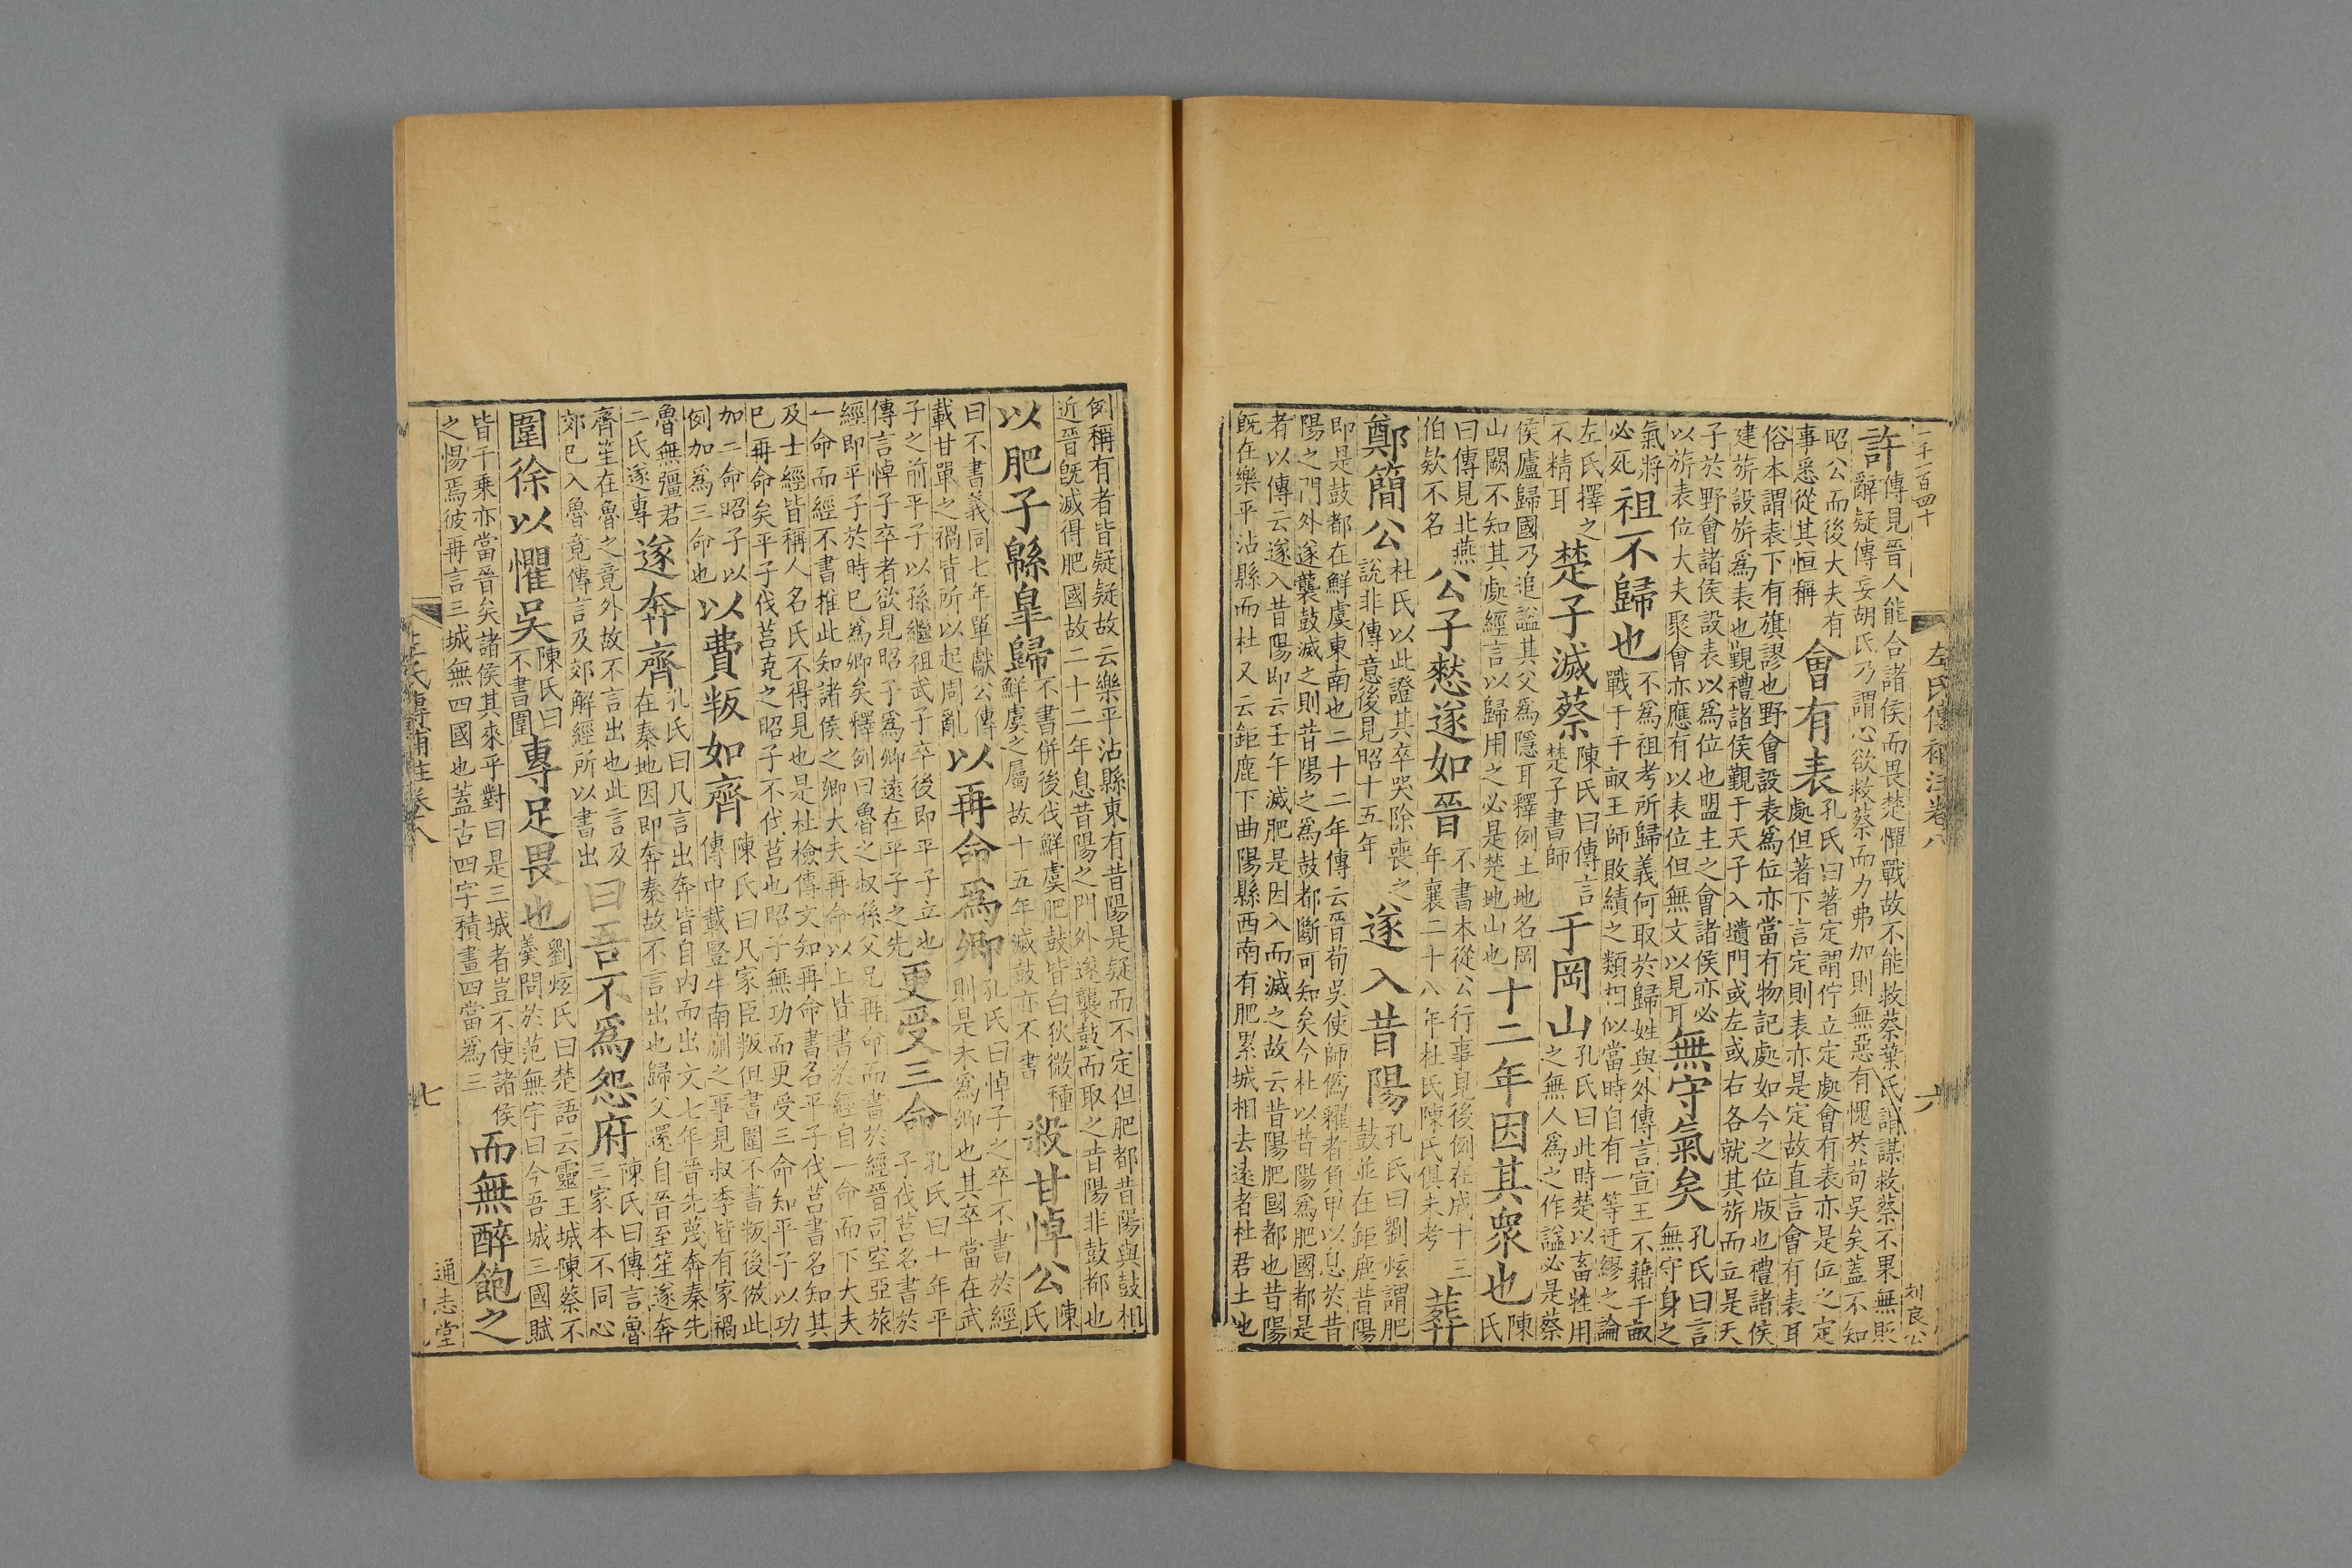 一千一百四十
左氏傳補注卷八
六
刘良公
許傳見晉人能合諸侯而畏楚憚戰故不能救蔡葉氏謂謀救蔡不果無敗
辭疑傳妄胡氏乃謂心欲救蔡而力弗加則無惡有愧於荀吳矣蓋不知
昭公而後大夫有
事悉從其恒稱
會有表
孔氏曰著定謂佇立定處會有表亦是位之定
處但著下言定則表亦是定故直言會有表耳
俗本謂表下有旗謬也野會設表為位亦當有物記處如今之位版也禮諸侯
建旂設旂為表也覲禮諸侯覲于天子入壝門或左或右各就其旂而立是天
子於野會諸侯設表以為位也盟主之會諸侯亦必
以旂表位大夫聚會亦應有以表位但無文以見耳
無守氣矣
孔氏曰言
無守身之
氣將
必死
祖不歸也
不為祖考所歸義何取於歸姓與外傳言宣王不藉千畝
戰于千畝王師敗績之類相似當時自有一等迂繆之論
左氏擇之
不精耳
楚子滅蔡
陳氏曰傳言
楚子書師
于岡山
孔氏曰此時楚以畜牲用
之無人為之作謚必是蔡
侯廬歸國乃追謚其父為隱耳釋例土地名岡
山闕不知其處經言以歸用之必是楚地山也
十二年因其衆也
陳
氏
曰傳見北燕
伯欵不名
公子憖遂如晉
不書本從公行事見後例在成十三
年襄二十八年杜氏陳氏俱未考
葬
鄭簡公
杜氏以此證其卒哭除喪之
說非傳意後見昭十五年
遂入昔陽
孔氏曰劉炫謂肥
鼓並在鉅鹿昔陽
即是鼓都在鮮虞東南也二十二年傳云晉荀吳使師偽糴者負甲以息於昔
陽之門外遂襲鼓滅之則昔陽之為鼓都斷可知矣今杜以昔陽為肥國都是
者以傳云遂入昔陽即云壬午滅肥是因入而滅之故云昔陽肥國都也昔陽
既在樂平沾縣而杜又云鉅鹿下曲陽縣西南有肥累城相去遠者杜君土地
例稱有者皆疑疑故云樂平沾縣東有昔陽是疑而不定但肥都昔陽與鼓相
近晉既滅得肥國故二十二年息昔陽之門外遂襲鼓而取之昔陽非鼓都也
以肥子緜臯歸
不書併後伐鮮虞肥鼓皆白狄微種
鮮虞之屬故十五年滅鼓亦不書
殺甘悼公
陳
氏
曰不書義同七年單獻公傳
載甘單之禍皆所以起周亂
以再命為卿
孔氏曰悼子之卒不書於經
則是未為卿也其卒當在武
子之前平子以孫繼祖武子卒後即平子立也
傳言悼子卒者欲見昭子為卿遠在平子之先
更受三命
孔氏曰十年平
子伐莒名書於
經即平子於時已為卿矣釋例曰魯之叔孫父兄再命而書於經晉司空亞旅
一命而經不書推此知諸侯之卿大夫再命以上皆書於經自一命而下大夫
及士經皆稱人名氏不得見也是杜檢傳文知再命書名平子伐莒書名知其
已再命矣平子伐莒克之昭子不伐莒也昭子無功而更受三命知平子以功
加二命昭子以
例加為三命也
以費叛如齊
陳氏曰凡家臣叛但書圍不書叛後倣此
傳中載豎牛南蒯之事見叔季皆有家禍
魯無彊君
二氏遂專
遂奔齊
孔氏曰凡言出奔皆自內而出文七年晉先蔑奔秦先
在秦地因即奔秦故不言出也歸父還自晉至笙遂奔
齊笙在魯之竟外故不言出也此言及
郊已入魯竟傳言及郊解經所以書出
曰吾不為怨府
陳氏曰傳言魯
三家本不同心
圍徐以懼吳
陳氏曰
不書圍
專足畏也
劉炫氏曰楚語云靈王城陳蔡不
羹問於范無宇曰今吾城三國賦
皆千乘亦當晉矣諸侯其來乎對曰是三城者豈不使諸侯
之惕焉彼再言三城無四國也蓋古四字積畫四當為三
而無醉飽之
左氏傳補注卷八
七
通志堂